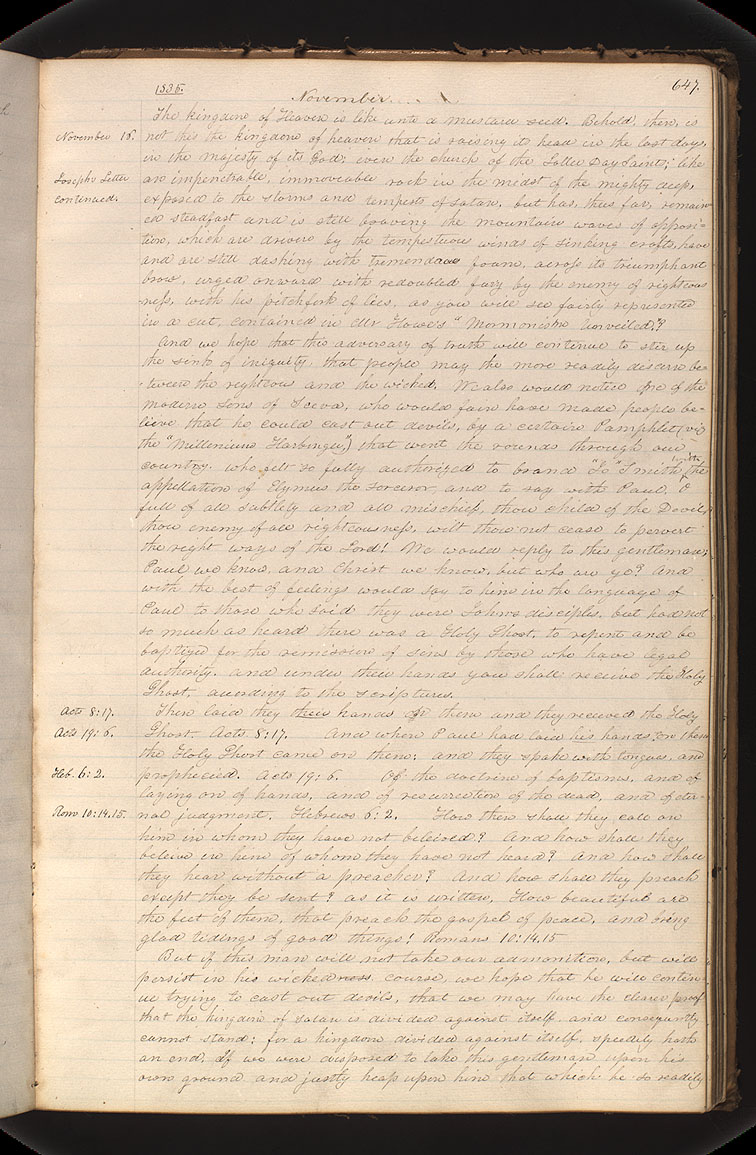 1835.
November
647.
The kingdom of Heaven is like unto a mustard seed. Behold, then, is
November 18.
not this the kingdom of heaven that is raising its head in the last days,
in the majesty of its God; even the church of the Latter Day Saints; like
Josephs Letter
continued.
an impenetrable, immoveable rock in the midst of the mighty deep,
exposed to the storms and tempests of satan, but has, thus far, remain-
ed steadfast and is still braving the mountain waves of opposi-
tion, which are driven by the tempestuous winds of sinking crafts, have
and are still dashing with tremendous foam, across its triumphant
brow, urged onward with redoubled fury by the enemy of righteous
ness, with his pitchfork of lies, as you will see fairly represented
in a cut, contained in Mr Howe's "Mormonism Unveiled"?
And we hope that this adversary of truth will continue to stir up
the sink of iniquity, that people may the more readily discern be-
tween the righteous and the wicked. We also would notice one of the
modern sons of Sceva, who would fain have made people be-
lieve that he could cast out devils, by a certain Pamphlet (viz
the "Millenium Harbinger,") that went the rounds through our
country, who felt so fully authorized to brand "Jo" Smith, with the
appellation of Elymus the sorceror, and to say with Paul, O
full of all subtlety and all mischief, thou child of the Devil,
thou enemy of all righteousness, wilt thou not cease to pervert
the right ways of the Lord! We would reply to this gentleman;
Paul we know, and Christ we know, but who are ye? And
with the best of feelings would say to him in the language of
Paul to those who said they were Johns disciples, but had not
so much as heard there was a Holy Ghost, to repent and be
baptized for the remission of sins by those who have legal
authority, and under their hands you shall receive the Holy
Ghost, according to the scriptures.
Acts 8:17.
Then laid they their hands on them and they received the Holy
Acts 19:6.
Ghost. Acts 8:17. And when Paul had laid his hands on them
the Holy Ghost came on them; and they spake with tongues, and
Heb. 6:2.
prophecied. Acts 19:6. Of the doctrine of baptisms, and of
laying on of hands, and of resurrection of the dead, and of eter-
Rom 10:14.15.
nal judgment. Hebrews 6:2. How then shall they call on
him in whom they have not beleived? And how shall they
beleive in him of whom they have not heard? And how shall
they hear without a preacher? And how shall they preach
except they be sent? as it is written, How beautiful are
the feet of them, that preach the gospel of peace, and bring
glad tidings of good things! Romans 10:14.15
But if this man will not take our admonition, but will
persist in his wickedness course, we hope that he will contin-
ue trying to cast out devils, that we may have the clearer proof
that the kingdom of satan is divided against itself, and consequently
cannot stand: for a kingdom divided against itself, speedily hath
an end. If we were disposed to take this gentleman upon his
own ground and justly heap upon him that which he so readily